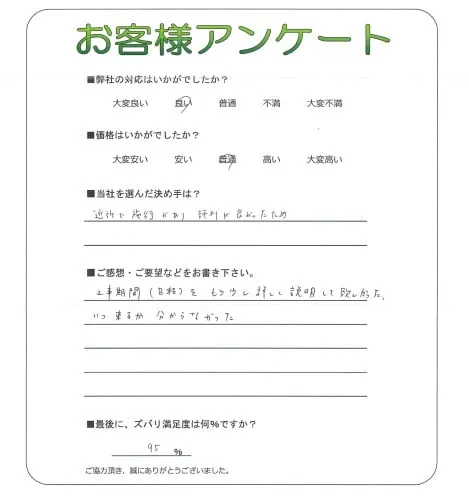 お客様アンケート
■弊社の対応はいかがでしたか？
大変良い 良い 普通 不満 大変不満
■価格はいかがでしたか？
大変安い 安い 普通 高い 大変高い
■当社を選んだ決め手は？
近所で施行があり 評判が良かったため
■ご感想・ご要望などをお書き下さい。
工事期間(日程)を もう少し詳しく説明して欲しかった、
いつ来るか 分からなかった
■最後に、ズバリ満足度は何%ですか？
95 %
ご協力頂き、誠にありがとうございました。